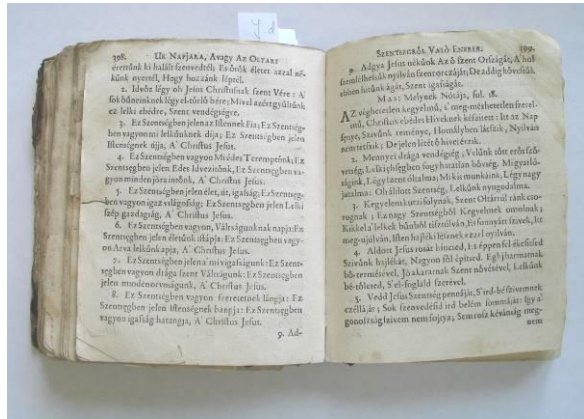 398. Ur Napjara, Avagy Az Oltari
érettünk ki halált szenvedtél; És örök életet azzal né-
künk nyertél, Hogy hozzánk léptél.
2. Idvöz légy oh Jesus Christusnak szent Vére: A'
sok bűneinknek légy el-törlö bére; Mivel azért gyűltünk
ez lelki ebédre, Szent vendégségre.
3. Ez Szentségben jelen az Istennek Fia; Ez Szentség-
ben vagyon mi lelkünknek díja; Ez Szentségben jelen
Istenségnek újja, A' Christus Jesus.
4. Ez Szentségben vagyon Mi édes Teremptönk; Ez
Szentségben jelen Édes Idvezitönk, Ez Szentségben va-
gyon minden jóra intönk, A' Christus Jesus.
5. Ez Szentségben jelen élet, út, igazság; Ez Szentség-
ben vagyon igaz világosság; Ez Szentségben jelen Lelki
szép gazdagság, A' Christus Jesus.
6. Ez Szentségben vagyon, Váltságunknak napja: Ez
Szentségben jelen életünk istápja: Ez Szentségben vagy-
on Árva lelkünk apja, A' Christus Jesus.
7. Ez Szentségben jelen a' mi vigaságunk: Ez Szent-
ségben vagyon drága szent Váltságunk: Ez Szentségben
jelen minden orvoságunk, A' Christus Jesus.
8. Ez Szentségben vagyon szeretetnek lángja: Ez
Szentségben jelen Istenségnek hangja: Ez Szentségben
vagyon igasság harangja, A' Christus Jesus.
9. Ad-
Szentsegrűl Való Enekek. 399
9. Adgya Jesus nékünk Az ő szent Országát, A' hol
szemlélhessük nyilván szent orczáját; De addig kövessük
ebben hitünk ágát, Szent igasságát.
Mas: Melynek Nótája, fol. 18.
AZ véghetetlen kegyelmű, 's meg-mérhetetlen szerel-
mű, Christus ebédet Hiveknek készitett: Itt az Nap
fénye, Szivünk reménye, Homályben lácznik, Nyilván
nem tetszik; De jelen lítét ő hivei érzik.
2. Mennyei drága vendégség, Velünk tött erös szö-
vetség, Lelki éhségben fogyhatatlan bűvség. Mi gyarló-
ságink, Légy szent óltalma; Mi kis munkáink, Légy nagy
jutalma: Oh áldott Szentség, Lelkünk nyugodalma.
3. Kegyelem kutai folynak, Szent Oltárrúl ránk cso-
rognak; Ez nagy Szentségböl Kegyelmek omolnak;
Kikkel a' lelkek bűnböl tisztúlván, És funnyátt szivek, Itt
meg-újolván, Isten hajléki lésznek ezzel nyilván.
4. Áldott Jesus rosát hincsed, Ez éppen fel-ékesitsed
Szivünk hajlékát, Nagyon föl épitsed. Égh járhatmatnak
bö-termésével, Jó akaratnak Szent növésével, Lelkünk
bé-töltsed, S'el-foglald szerével.
5. Vedd Jesus Szentség pennáját, S'ird-bé szivemnek
czélláját; Sok szenvedésid ird belém summáját: Igy a'
gonosság szivem nem fojtya; Sem rosz kévánság meg-
nem